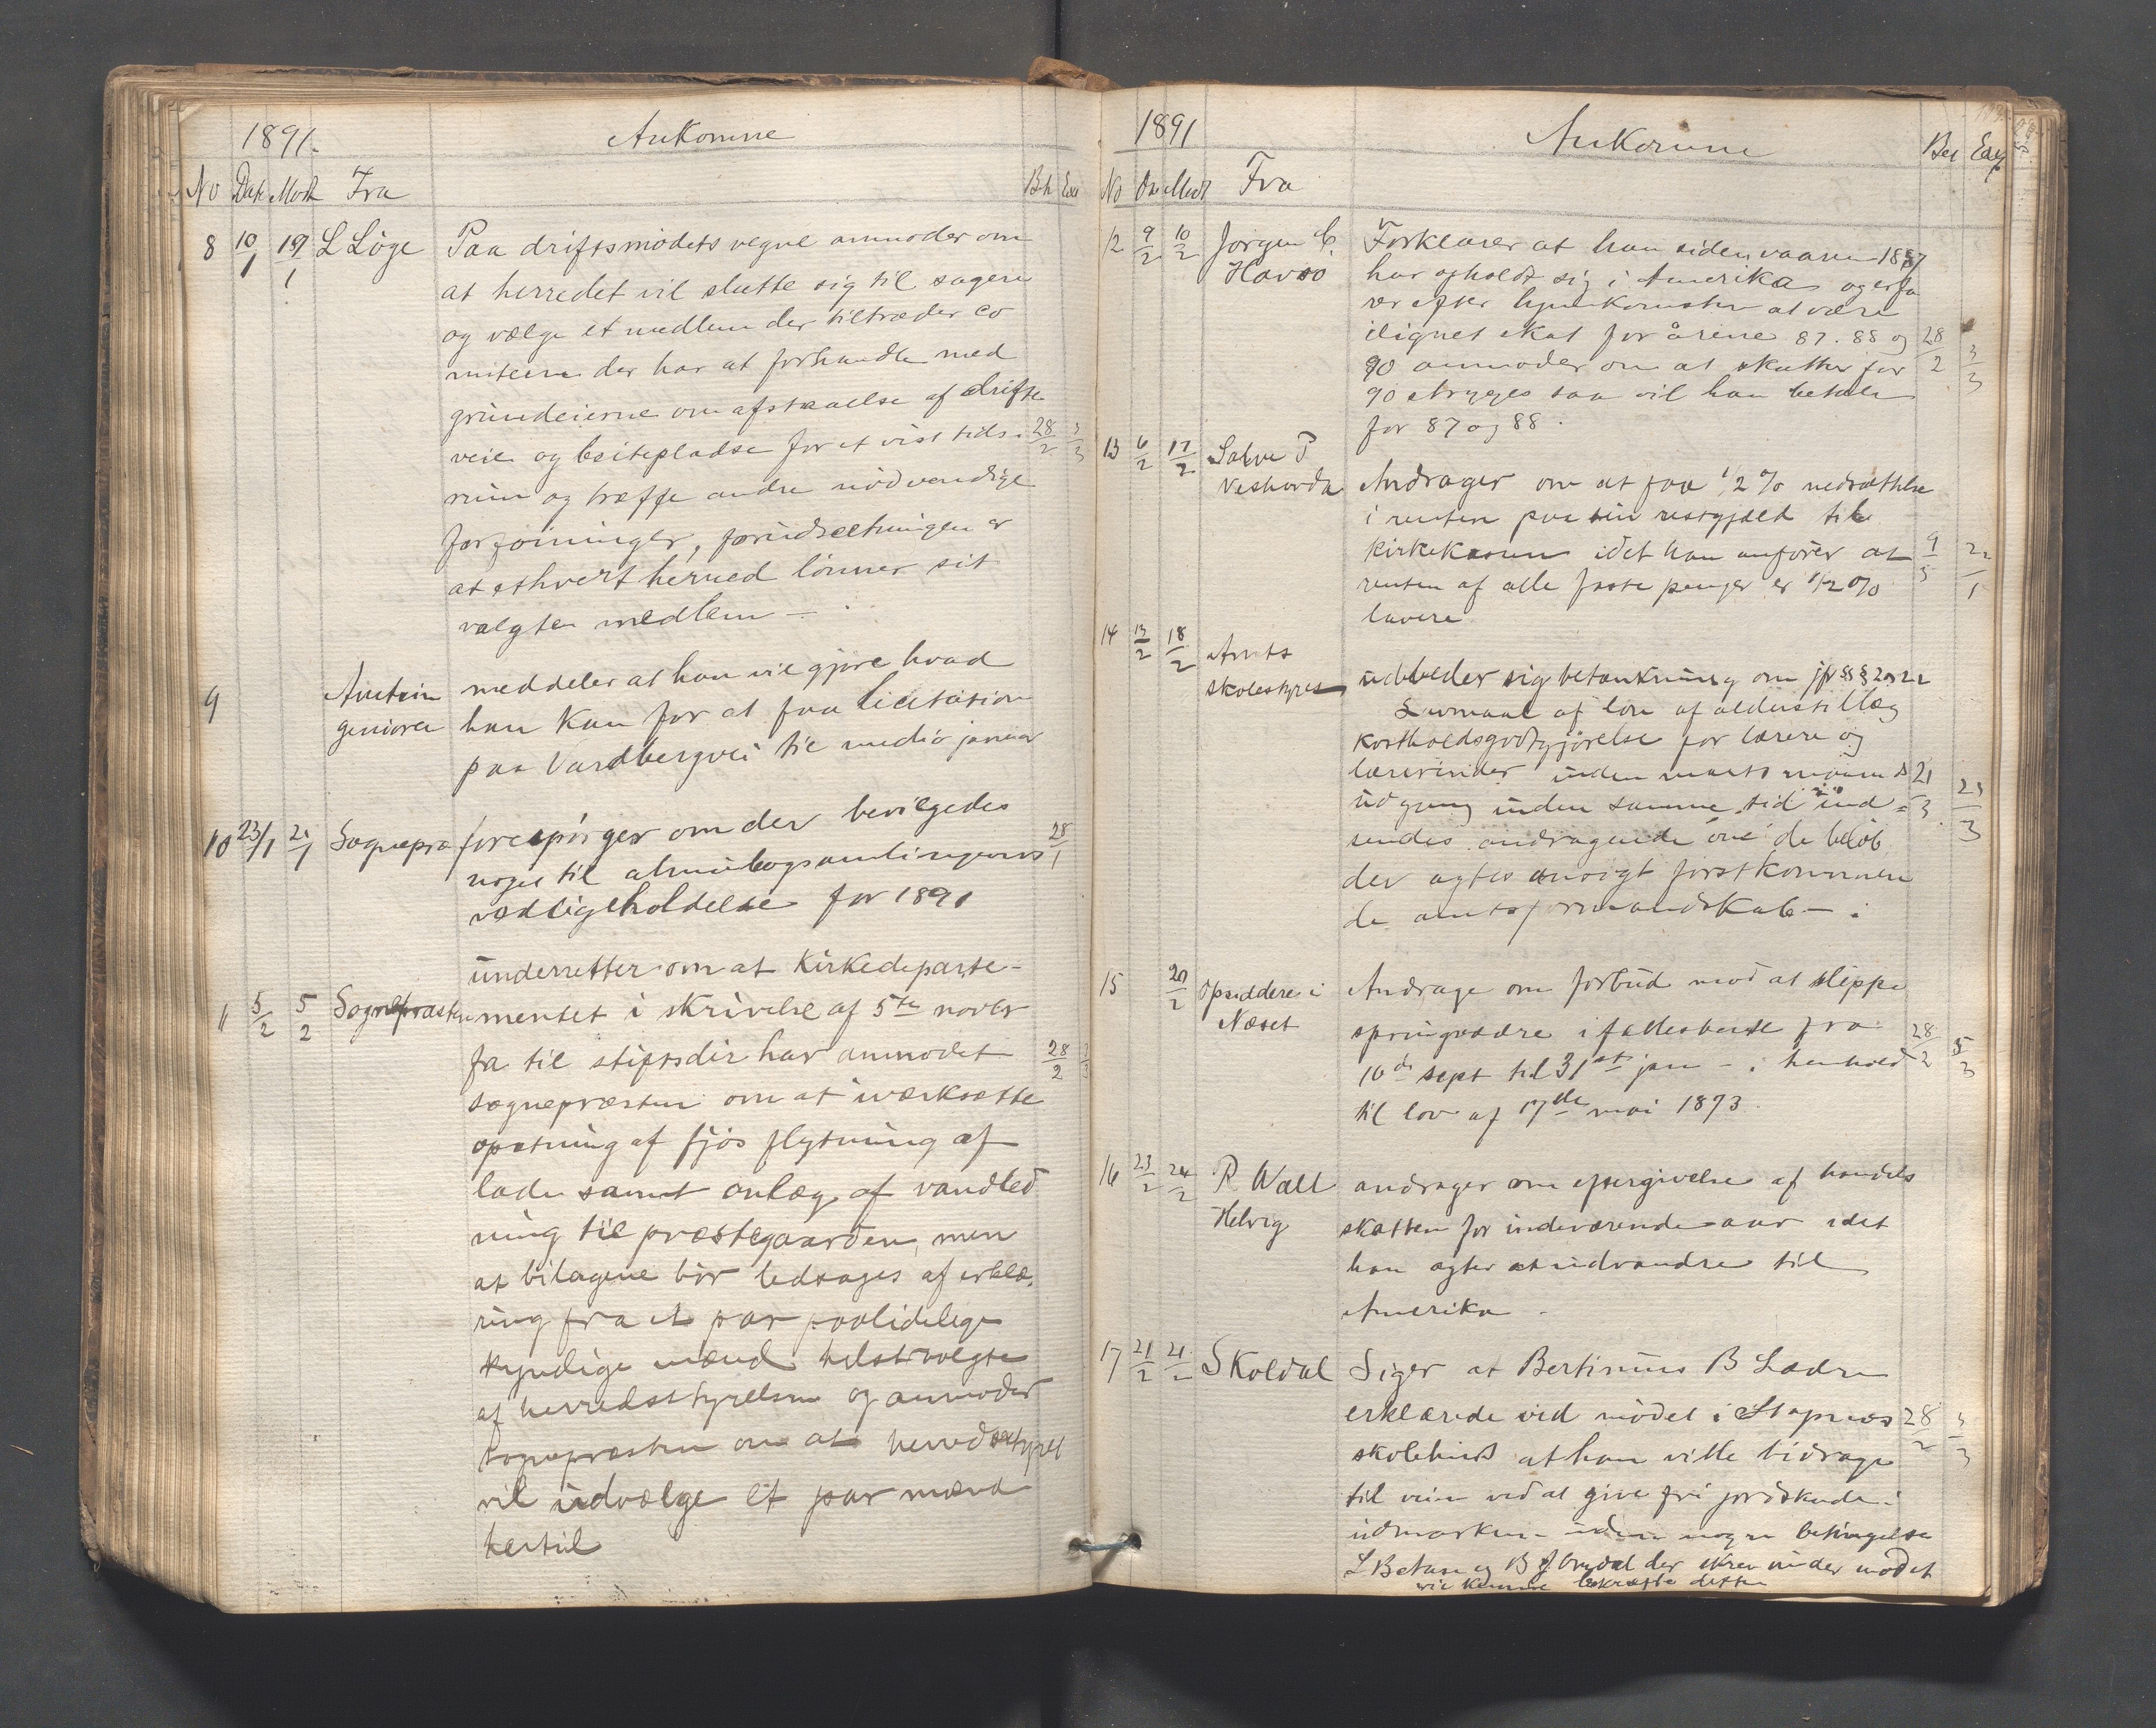 1891. Ankomne
No Dat Modt Fra Beh Exp
8 10/1 19/1 L Löge Paa driftsmödets vegne anmoder om
at herredet vil slutte sig til sagen
og vælge et medlem der tiltræder co
miteen der har at forhandle med
grundeierne om afstaaelse af drifte
veie og beitepladse for et vist tids- 28/2 3/3
rum og træffe andre nödvendige
forföininger, forudsetningen er
at ethvert herred lönner sit
valgte medlem —
9 Amtsin meddeler at han vil gjøre hvad
geniøren han kan for at faa licitation
paa Vardbergvei til medio januar
10 23/1 24/1 Sognepræ forespörger om der bevilgedes
noget til almuebogsamlingens 28/1
vedligeholdelse for 1891
underretter om at Kirkedeparte-
11 5/2 5/2 Sognepræsten mentet i skrivelse af 5te novbr
fa til stiftsdir har anmodet 28/2 3/3
sognepræsten om at iværksætte
opsetning af fjös flytning af
lade samt anlæg af vandled
ning til præstegaarden, men
at bilagene bör ledsages af erklæ.
ring fra et par paalidelige
kyndige mænd helst valgte
af herredsstyrelsen og anmoder
sognepræsten om at herredsstyret
vil udvælge et par mænd
hertil
1891 Ankomne
No Dat Modt Fra Beh Exp
12 9/2 10/2 Jörgen C. Forklarer at han siden vaaren 1887
Havsö har opholdt sig i Amerika og erfa
rer efter hjemkomsten at være
ilignet skat for årene 87. 88 og 28/2 3/3
90 anmoder om at skatten for
90 stryges saa vil han betale
for 87 og 88.
13 6/2 17/2 Salve P
Veshovda Andrager om at faa 1/2 % nedsættelse
i renten paa sin restgjæld til
kirkekassen idet han anförer at 9/5 22/1
renten af alle faste penger er 1/2 %
lavere
14 13/2 18/2 Amts
skolestyret udbeder sig betænkning om jfr §§ 20 22
af lön af alderstillæg
kostholdsgodtgjörelse for lærere og
lærerinder inden marts maaneds 21/3 23/3
udgang inden samme tid ind-
sendes andragende om de belöb
der agtes ansögt förstkommen
de amtsformandskab —
15 20/2 Opsiddere i Andrage om forbud mod at slippe
Næset springvædre i fælledsbeite fra 28/2 5/3
10de sept til 31ste jan — i henhold
til lov af 17de mai 1873.
16 23/2 24/2 P Wall andrager om eftergivelse af handels
Helvig skatten for indeværende aar idet
han agter at udvandre til
Amerika.
17 21/2 21/2 Skoldal Siger at Bertinius B Ladre
erklærede ved mödet i Stapnæs 28/2 3/3
skolehus at han ville bidrage
til veien ved at give fri jordskade i
udmarken uden nogen betingelse
L Betuse og B J Omdal der skrev under mödet
vil kunne bekræfte dette